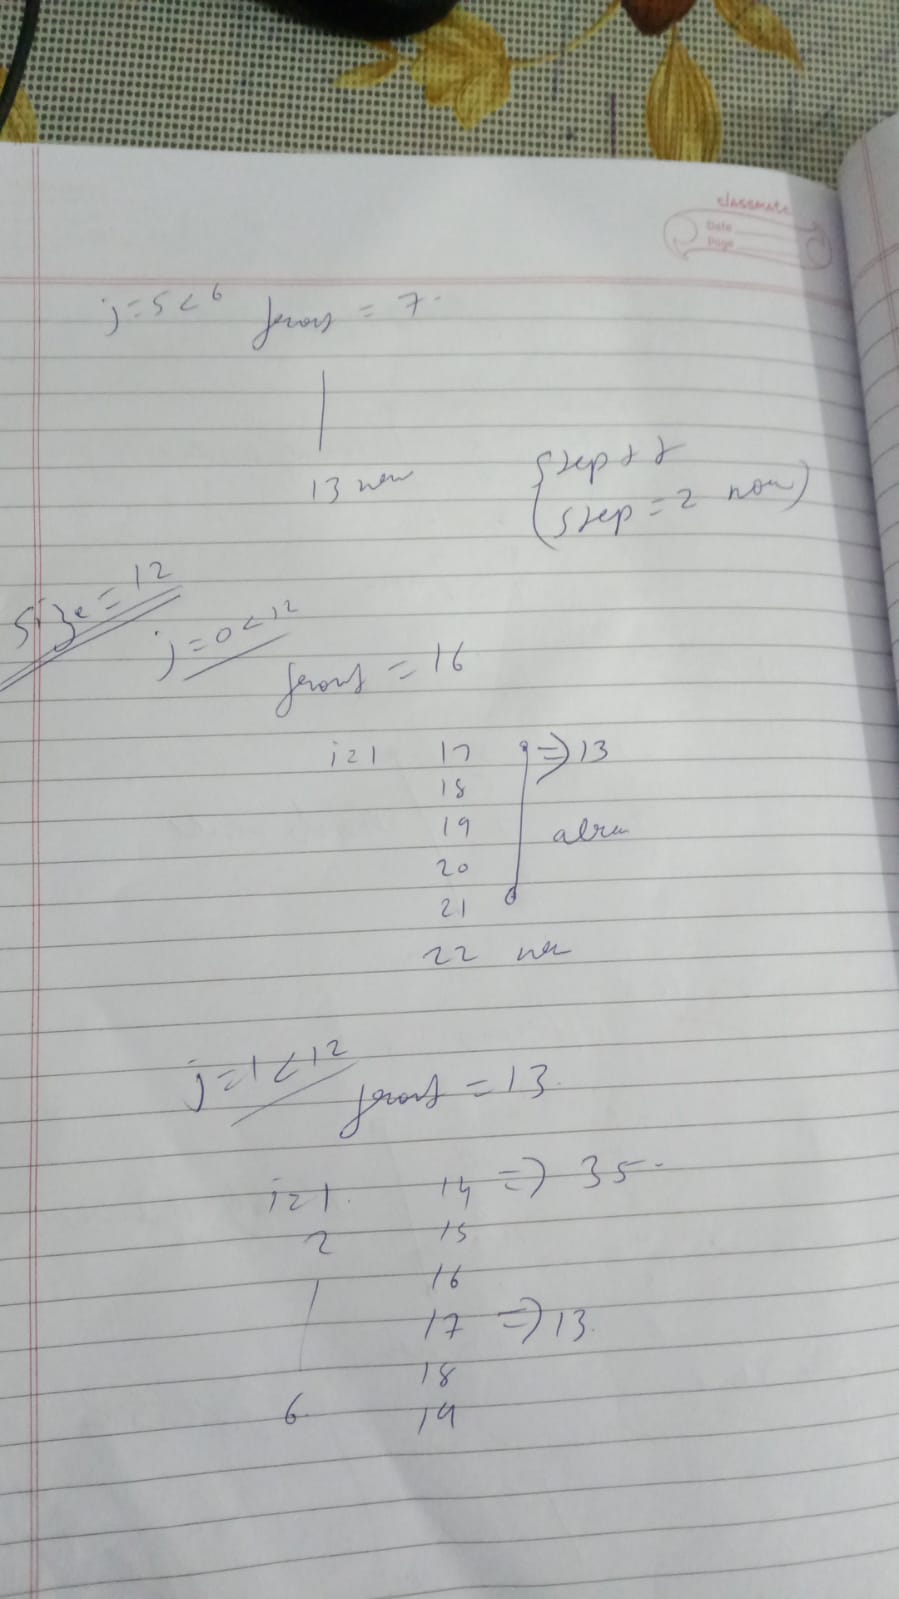 classmate
Date
Page
j=5<6 front = 7.
13 new
step++
(step=2 now)
size=12
j=0<12
front = 16
i=1 17 => 13
18
19
20
21
22
j=1<12
front = 13.
i=1. 14 => 35.
2 15
16
17 => 13.
18
6. 19